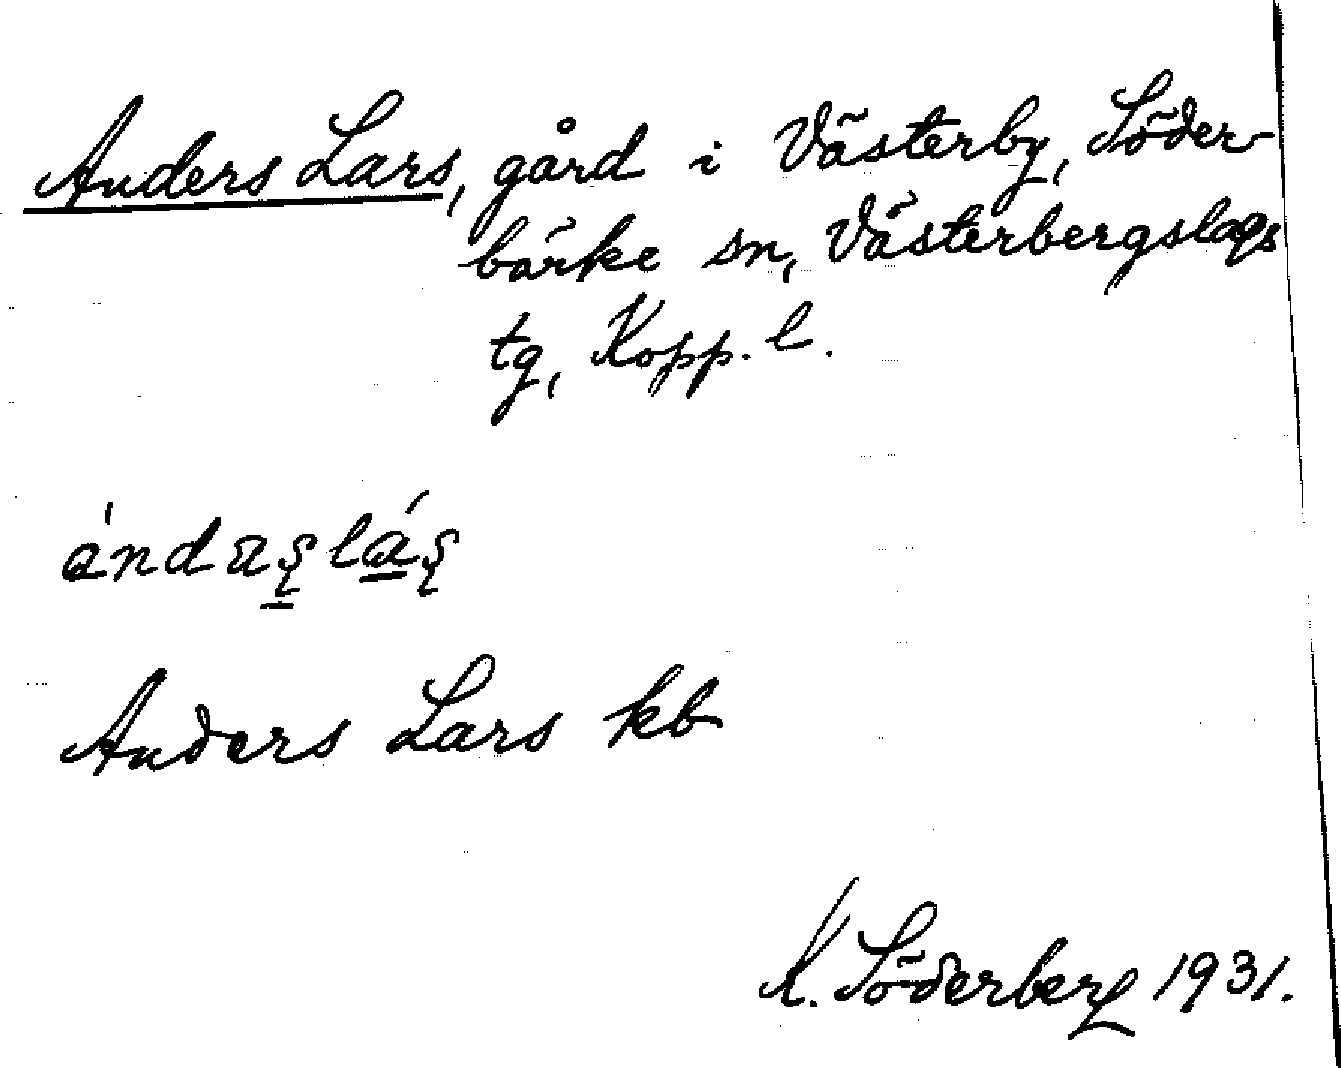 Anders Lars, gård i Västerby, Söder-
bärke sn, Västerbergslags
tg, Kopp. l.
Anders Lars kb
K. Söderberg 1931.